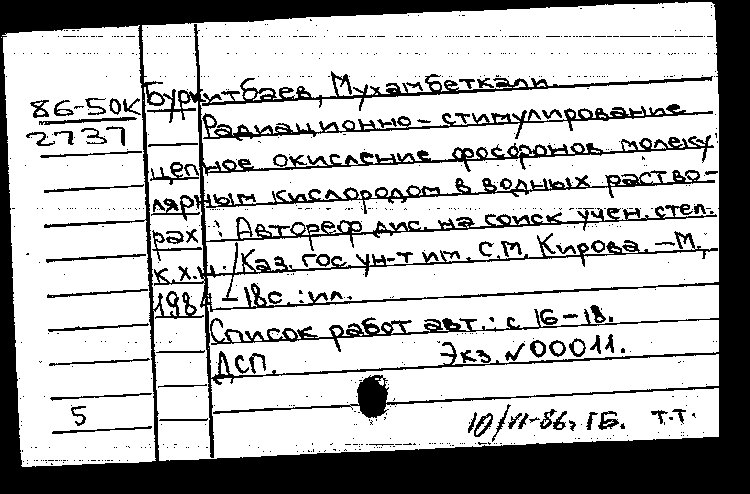 86-50К
2737
Буркитбаев, Мухамбеткали.
Радиационно-стимулирование
цепное окисление фосфоронов молеку-
лярным кислородом в водных раство-
рах : Автореф дис. на соиск учен. степ.
к.х.н. / Каз. гос. ун-т им. С.М. Кирова. – М.,
1984 – 18с. : ил.
Список работ авт.: с. 16–18.
ДСП. Экз. N 00011.
5
10/VI-86, ГБ. Т.Т.